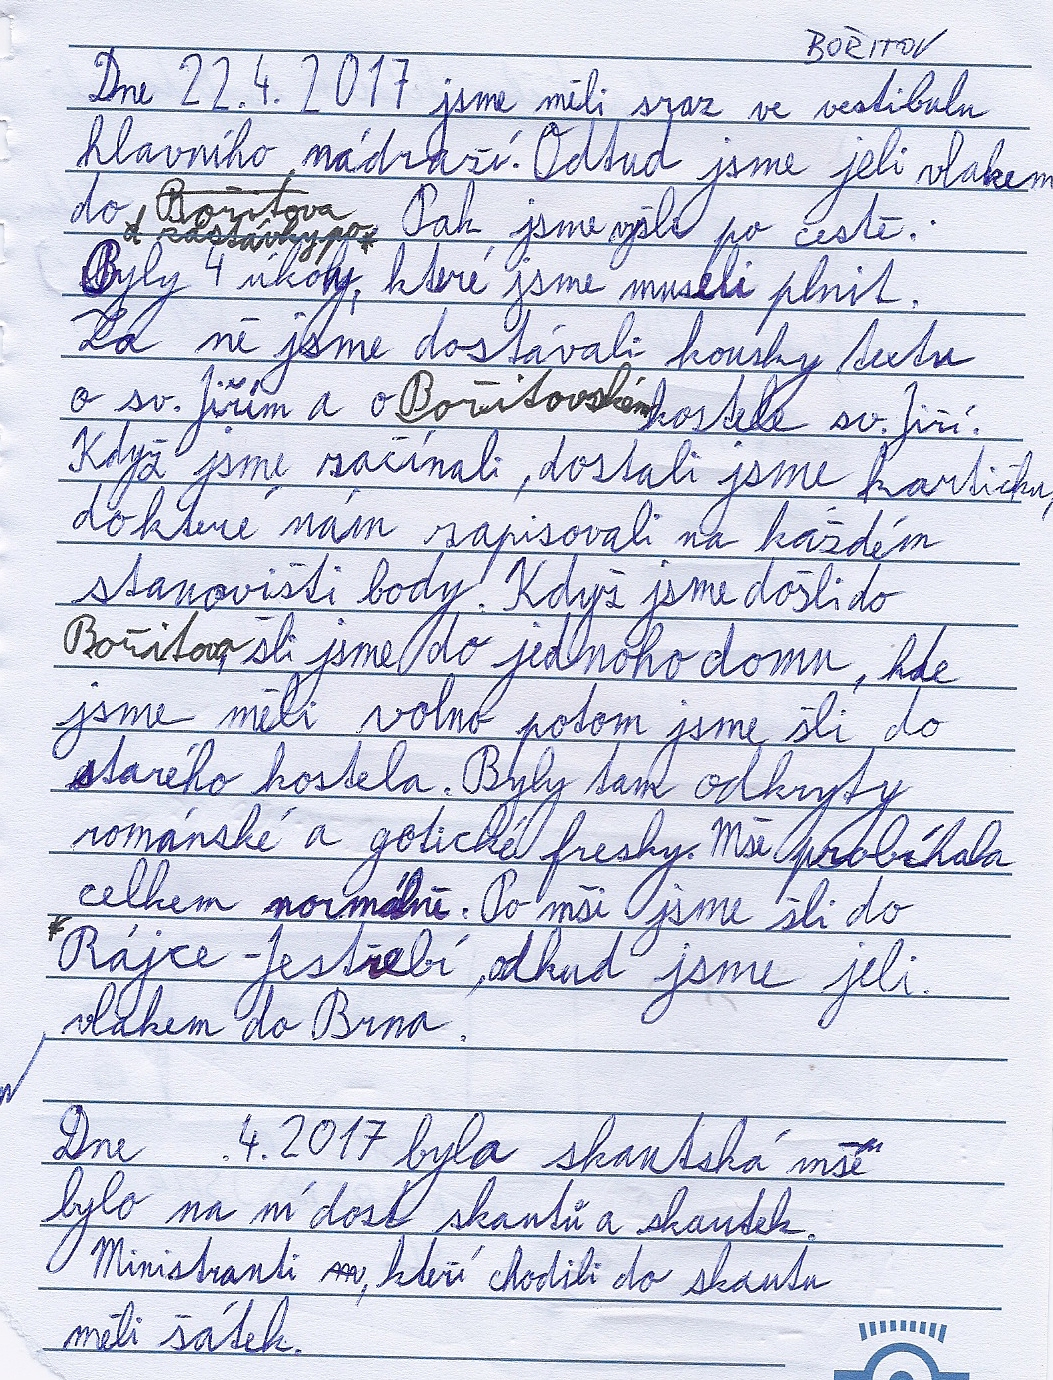 BOŘITOV
Dne 22.4.2017 jsme měli sraz ve vestibulu
hlavního nádraží. Odtud jsme jeli vlakem
do Bořitova Pak jsme vyšli po cestě.
zastávky po*
Byly 4 úkoly, které jsme museli plnit.
Za ně jsme dostávali kousky textu
o sv. Jiřím a o Bořitovském kostele sv. Jiří.
Když jsme začínali, dostali jsme kartičku,
do které nám zapisovali na každém
stanovišti body. Když jsme došli do
Bořitova, šli jsme do jednoho domu, kde
jsme měli volno potom jsme šli do
starého kostela. Byly tam odkryty
románské a gotické fresky. Mše probíhala
celkem normálně. Po mši jsme šli do
*Rájce-Jestřebí, odkud jsme jeli
vlakem do Brna.
Dne .4.2017 byla skautská mše
bylo na ní dost skautů a skautek.
Ministranti, kteří chodili do skautu
měli šátek.